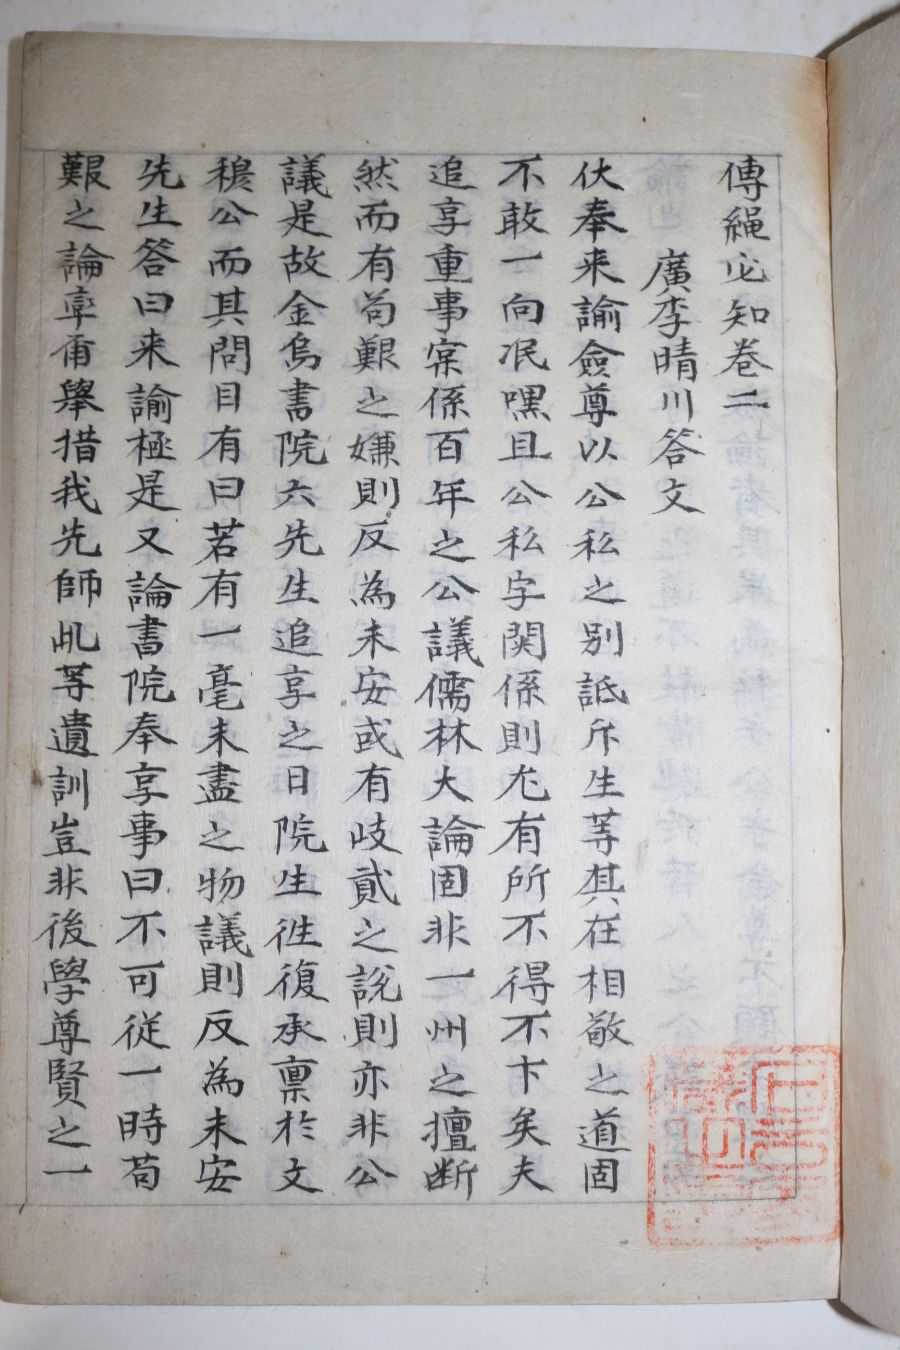 傳繩必知卷二
廣李晴川答文
伏奉来諭僉尊以公私之別詆斥生等其在相敬之道固
不敢一向泯嘿且公私字関係則尤有所不得不卞矣夫
追享重事寀係百年之公議儒林大論固非一州之擅断
然而有苟艱之嫌則反為未安或有歧貳之說則亦非公
議是故金烏書院六先生追享之日院生徃復承稟於文
穆公而其問目有曰若有一毫未盡之物議則反為未安
先生答曰来諭極是又論書院奉享事曰不可従一時苟
艱之論率甭舉措我先師此等遺訓豈非後學尊賢之一